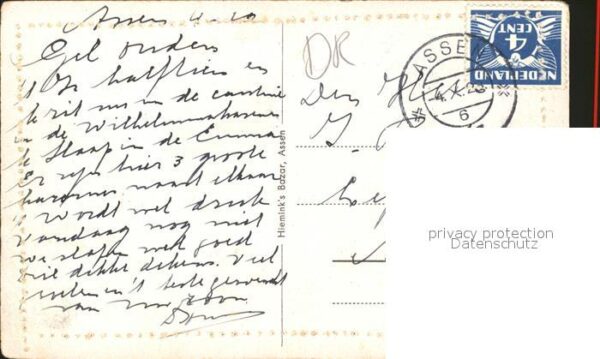 Assen 4-10
Gel ouders
Op half tien en
k zit nu in de cantine
in de Wilhelminakazerne
k Slaap in de Emma
Er zijn hier 3 groote
kazernes naast elkaar
t Wordt wel druk
vandaag nog niet
we slapen wel goed
viel dikke dekens. Veel
groeten en 't beste gewenscht
van uw zoon
DR
Hiemink's Bazar, Assen
Den
ASSEN
4.X.
6
4
CENT
NEDERLAND
privacy protection
Datenschutz